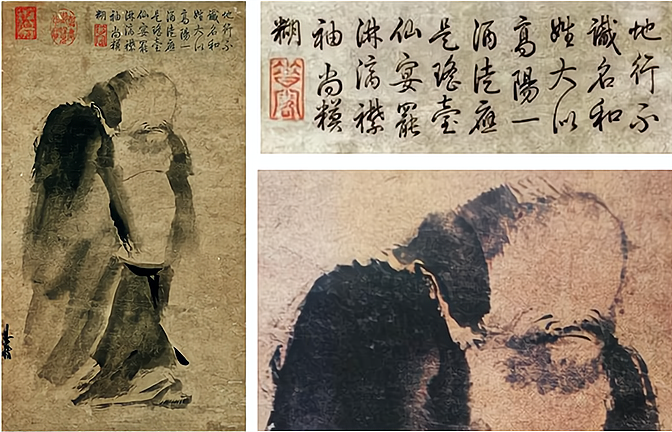 地行不
識名和
姓大似
高陽一
酒徒應
是瑤臺
仙宴罷
淋漓襟
袖尚糢
糊
地行不
識名和
姓大似
高陽一
酒徒應
是瑤臺
仙宴罷
淋漓襟
袖尚糢
糊